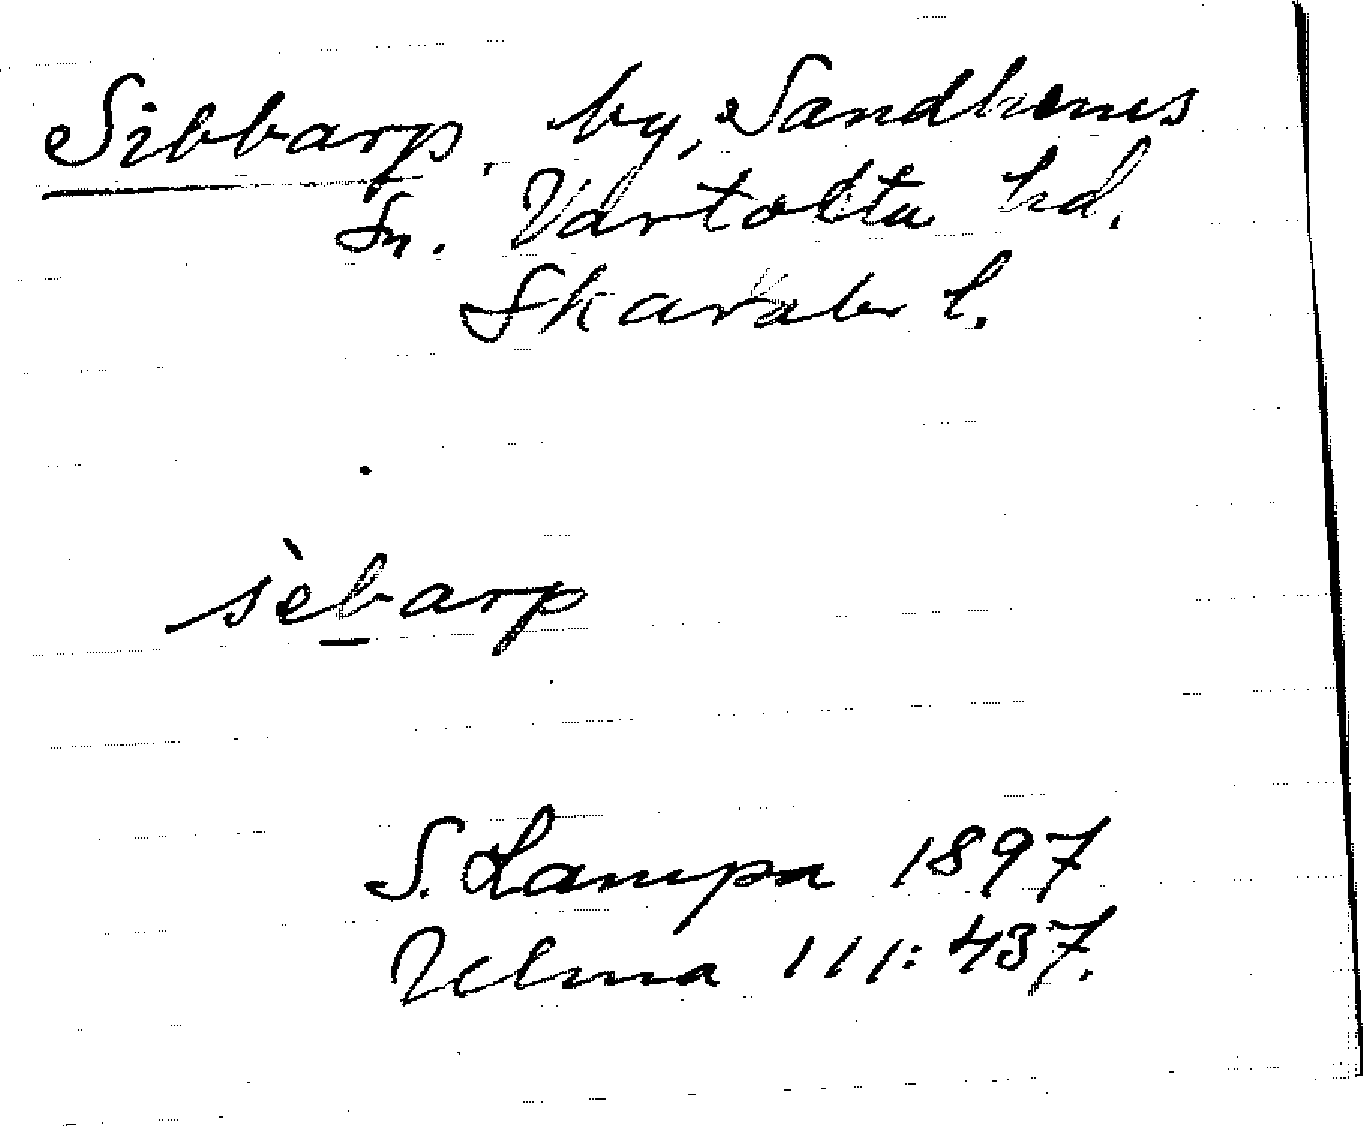 Sibbarp, by, Sandhems
Sn. Vartofta hd.
Skarab. l.
sèbarp
S. Lampa 1897
Ulma 111:437.